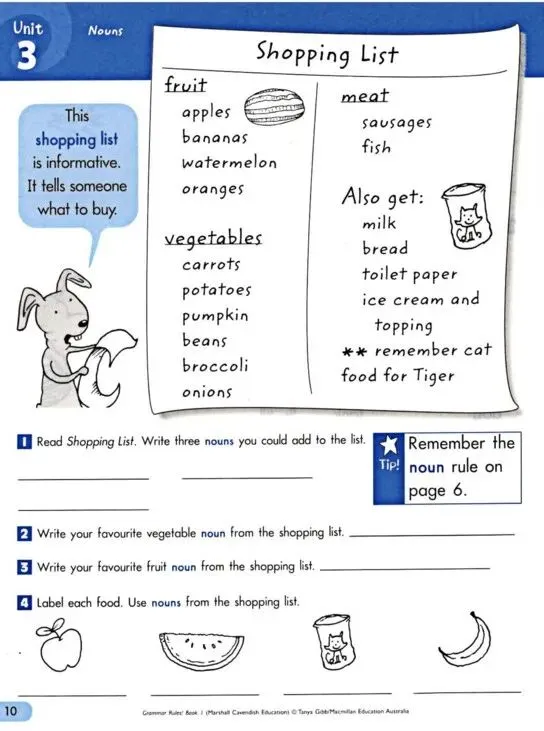 Unit
3
Nouns
Shopping List
This
shopping list
is informative.
It tells someone
what to buy.
fruit
apples
bananas
watermelon
oranges
vegetables
carrots
potatoes
pumpkin
beans
broccoli
onions
meat
sausages
fish
Also get:
milk
bread
toilet paper
ice cream and
topping
** remember cat
food for Tiger
1 Read Shopping List. Write three nouns you could add to the list.
Tip!
Remember the
noun rule on
page 6.
2 Write your favourite vegetable noun from the shopping list.
3 Write your favourite fruit noun from the shopping list.
4 Label each food. Use nouns from the shopping list.
10
Grammar Rules! Book 1 (Marshall Cavendish Education) © Tanya Gibb/Macmillan Education Australia